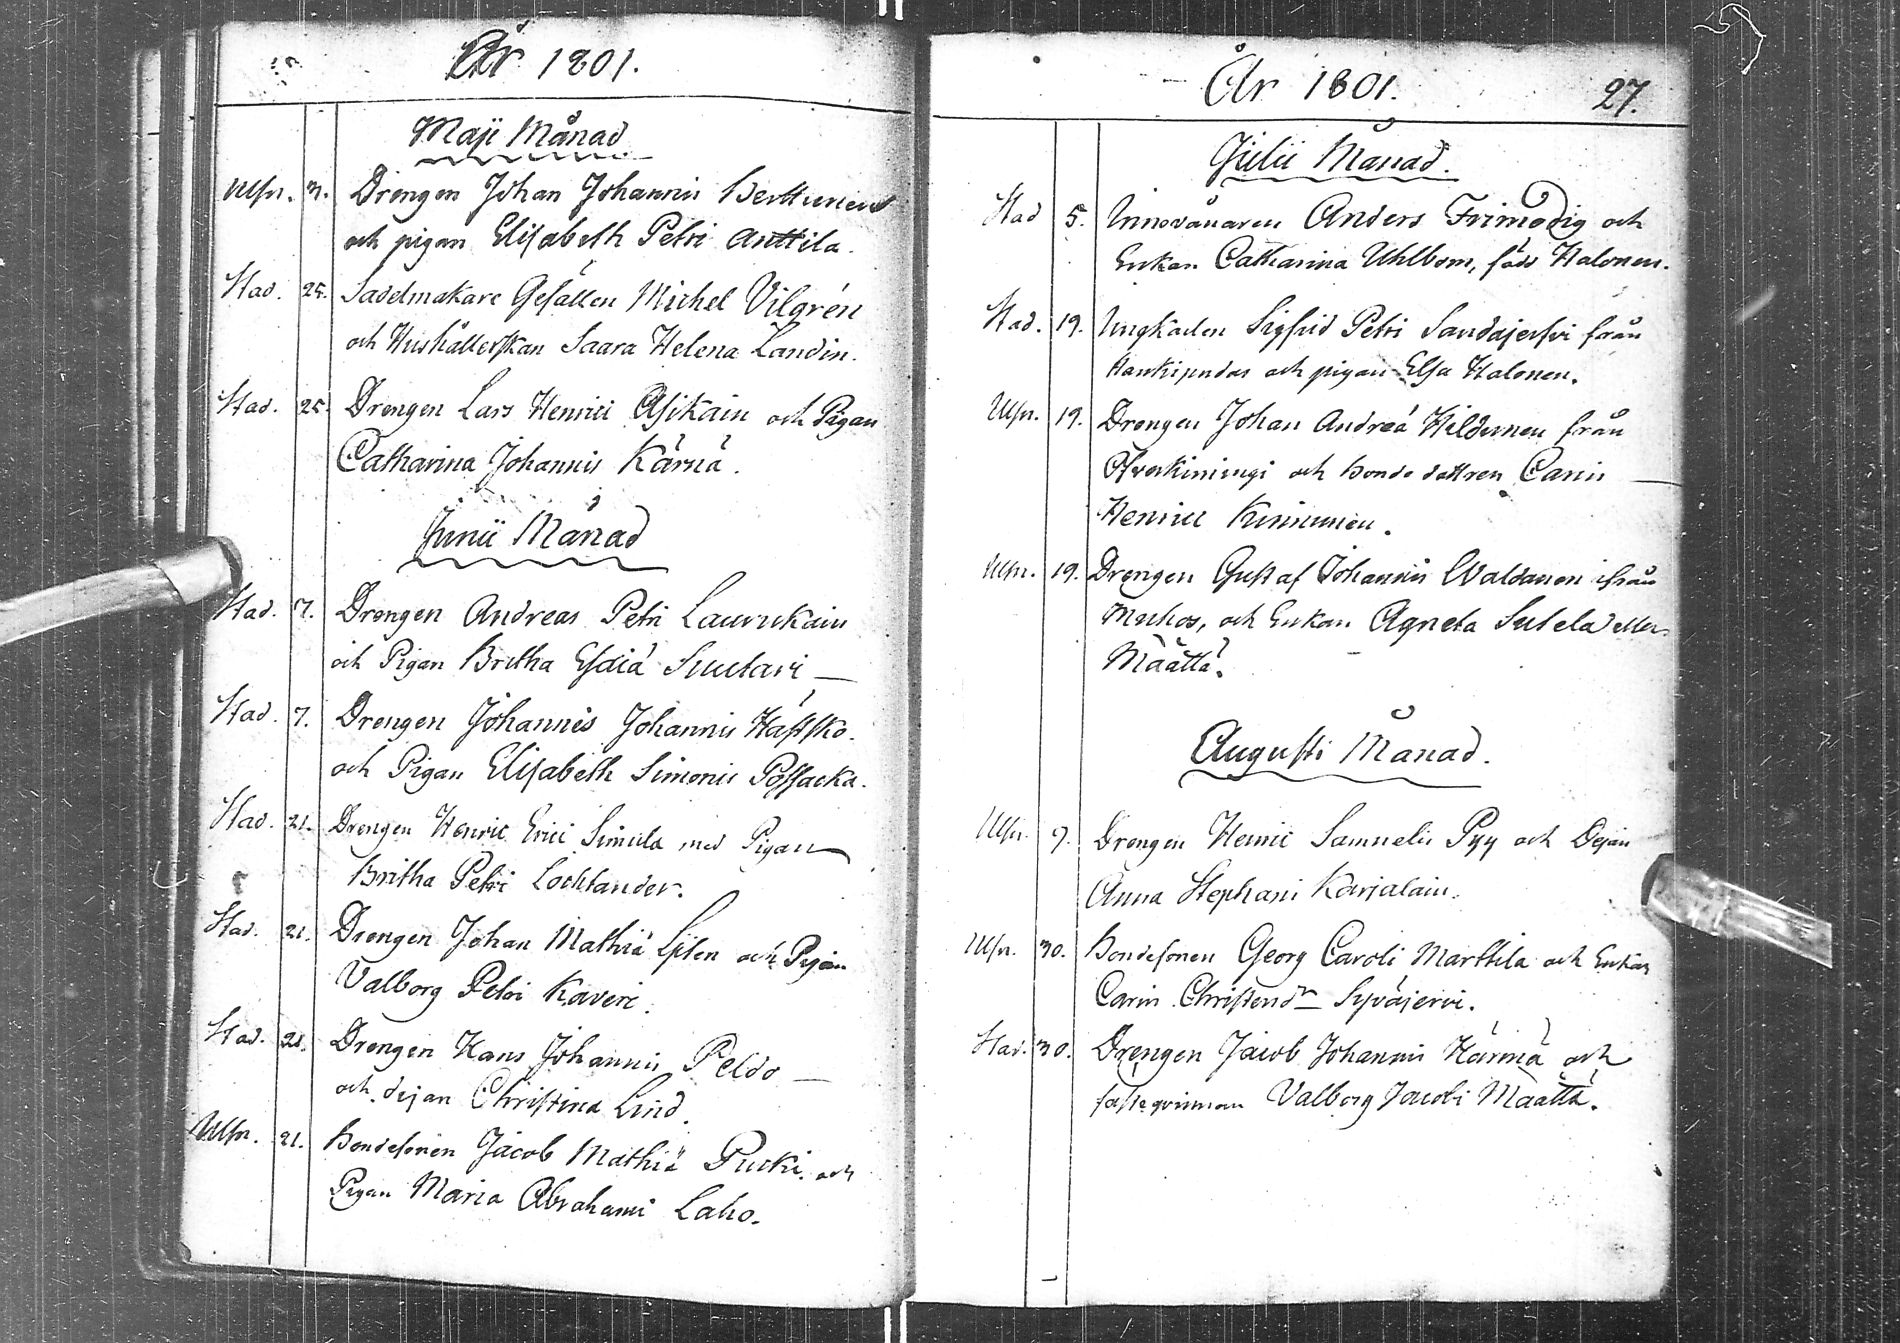 År 1801.
Maji Månad
Ulfr. 3. Drengen Johan Johannis Herttunen
och pigan Elisabeth Petri Anttila.
Stad. 25. Sadelmakare Gesällen Michel Vilgrén
och Hushållerskan Saara Helena Landin.
Stad. 25. Drengen Lars Henrici Asikain och Pigan
Catharina Johannis Kärnä.
Junii Månad
Stad. 7. Drengen Andreas Petri Laurukain
och Pigan Britha Esaiä Suutari
Stad. 7. Drengen Johannes Johannis Hästsko.
och Pigan Elisabeth Simonis Possacka.
Stad. 21. Drengen Henric Erici Simula med Pigan
Britha Petri Lochlander.
Stad. 21. Drengen Johan Mathiä Lijten och Pigan
Valborg Petri Kaveri.
Stad. 21. Drengen Hans Johannis Peldo
och dejan Christina Lind.
Ulfr. 21. Bondesonen Jacob Mathiä Pucki och
Pigan Maria Abrahami Laho.
År 1801. 27.
Julii Månad.
Stad 5. Innevånaren Anders Frimodig och
Enkan Catharina Uhlbom, född Halonen.
Stad. 19. Ungkarlen Sigfrid Petri Saudajerfvi från
Haukipudas och pigan Elsa Halonen.
Ulfr. 19. Drengen Johan Andreä Hildunen från
Öfverkimingi och bonde dottren Carin
Henrici Kinnunen.
Ulfr. 19. Drengen Gustaf Johannis Waldanen ifrån
Muhos, och Enkan Agneta Sutela eller
Määttä.
Augusti Månad.
Ulfr. 9. Drengen Henric Samuelis Pyy och Dejan
Anna Stephani Karjalain.
Ulfr. 30. Bondesonen Georg Caroli Marttila och Enkan
Carin Christendr Syväjervi.
Stad. 30. Drengen Jacob Johannis Härmä och
fästeqvinnan Valborg Jacobi Määttä.